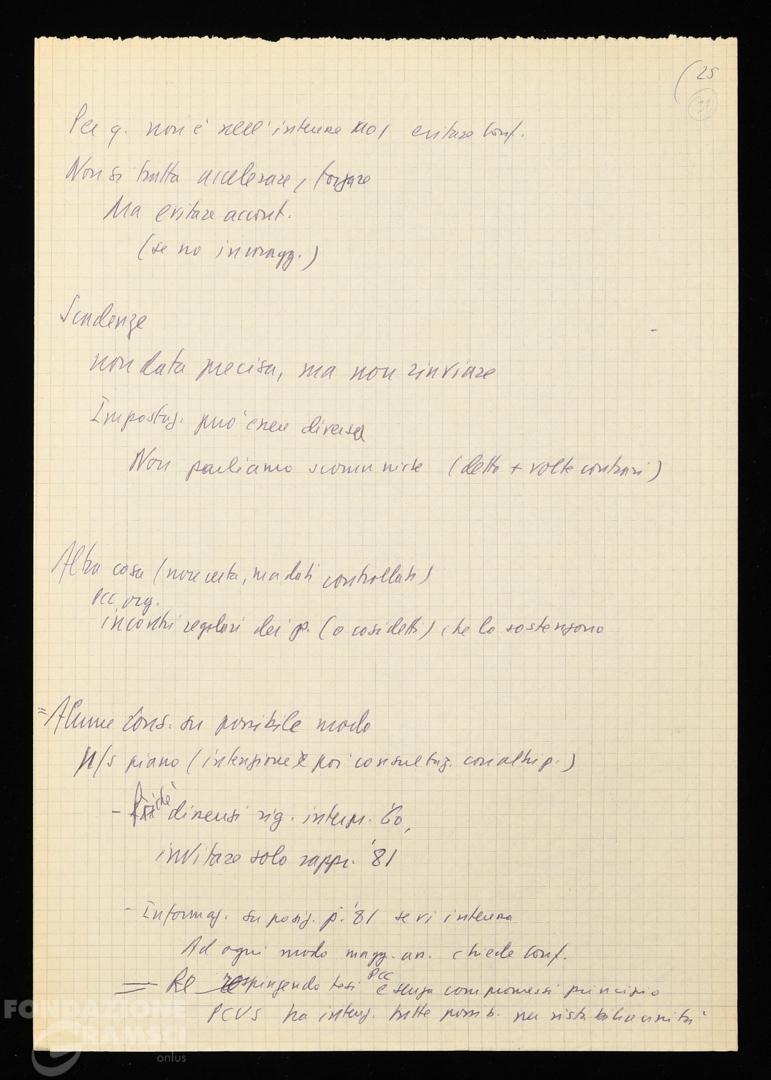 (25
(71)
Per q. non è nell'interesse mo/ evitare conf.
Non si tratta accelerare, forzare
Ma evitare accont.
(se no incoragg.)
Scadenze
non data precisa, ma non rinviare
Impostaz. può essere diversa
Non parliamo scomuniche (detto + volte contrari)
Altra cosa (non certa, ma dati controllati)
PCC org.
incontri regolari dei p. (o cosidetti) che lo sostengono
= Alcune cons. su possibile modo
N/s piano (intenzione è poi consultaz. con altri p.)
- dissensi rig. interpr. 60,
invitare solo rappr. '81
- Informaz. su posiz. p. '81 se vi interessa
Ad ogni modo magg. an. chiede conf.
= Re respingendo tesi PCC e senza compromessi principio
PCUS ha intenz. tutte possib. per ristabilire unità
FONDAZIONE
GRAMSCI
onlus